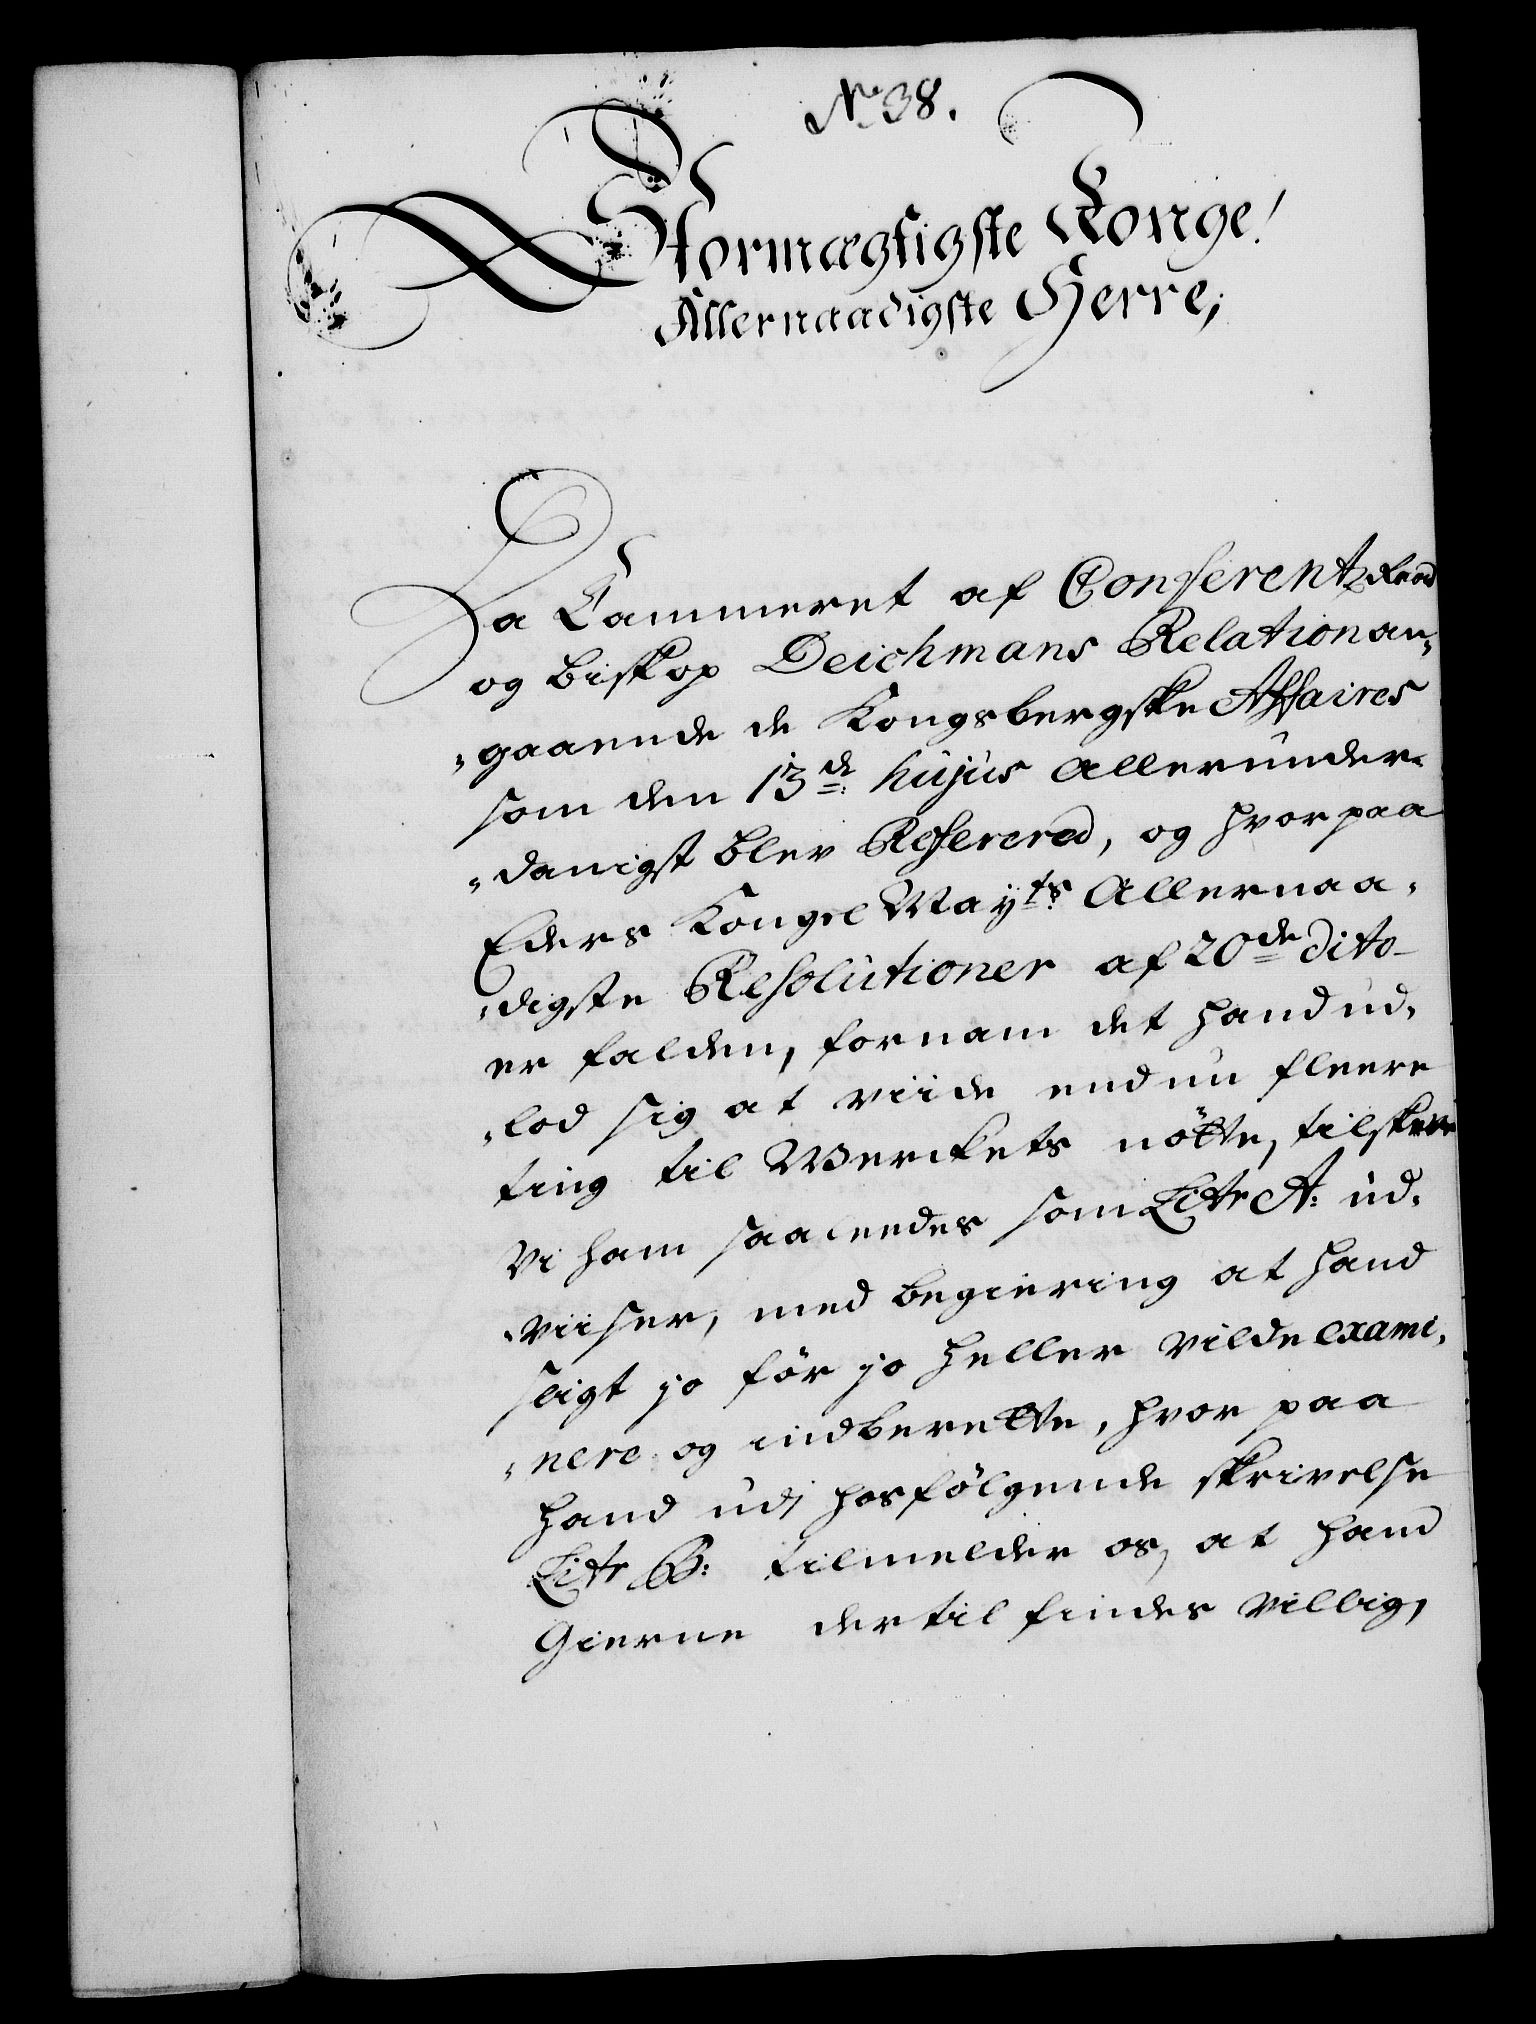 No 38.
Stormægtigste Konge!
Allernaadigste Herre,
Da Cammeret af Conferentz Raad
og Biskop Deichmans Relation an„
„gaaende de Kongsbergske Affaires
som den 13de hujus allerunder„
„danigst blev Referered, og hvorpaa
Eders Kongel Mayts Allernaa„
„digste Resolutioner af 20de dito
er falden, fornam det hand ud„
„lod sig at viide endnu fleere
ting til Werckets nötte, tilskrev
vi ham saaledes som Litr A: ud„
„viiser, med begiering at hand
sligt jo för jo heller vilde exami„
„nere og indberette, hvor paa
hand udj hosfölgende skrivelse
Litr B: tilmelder os, at hand
Gierne dertil findes villig,